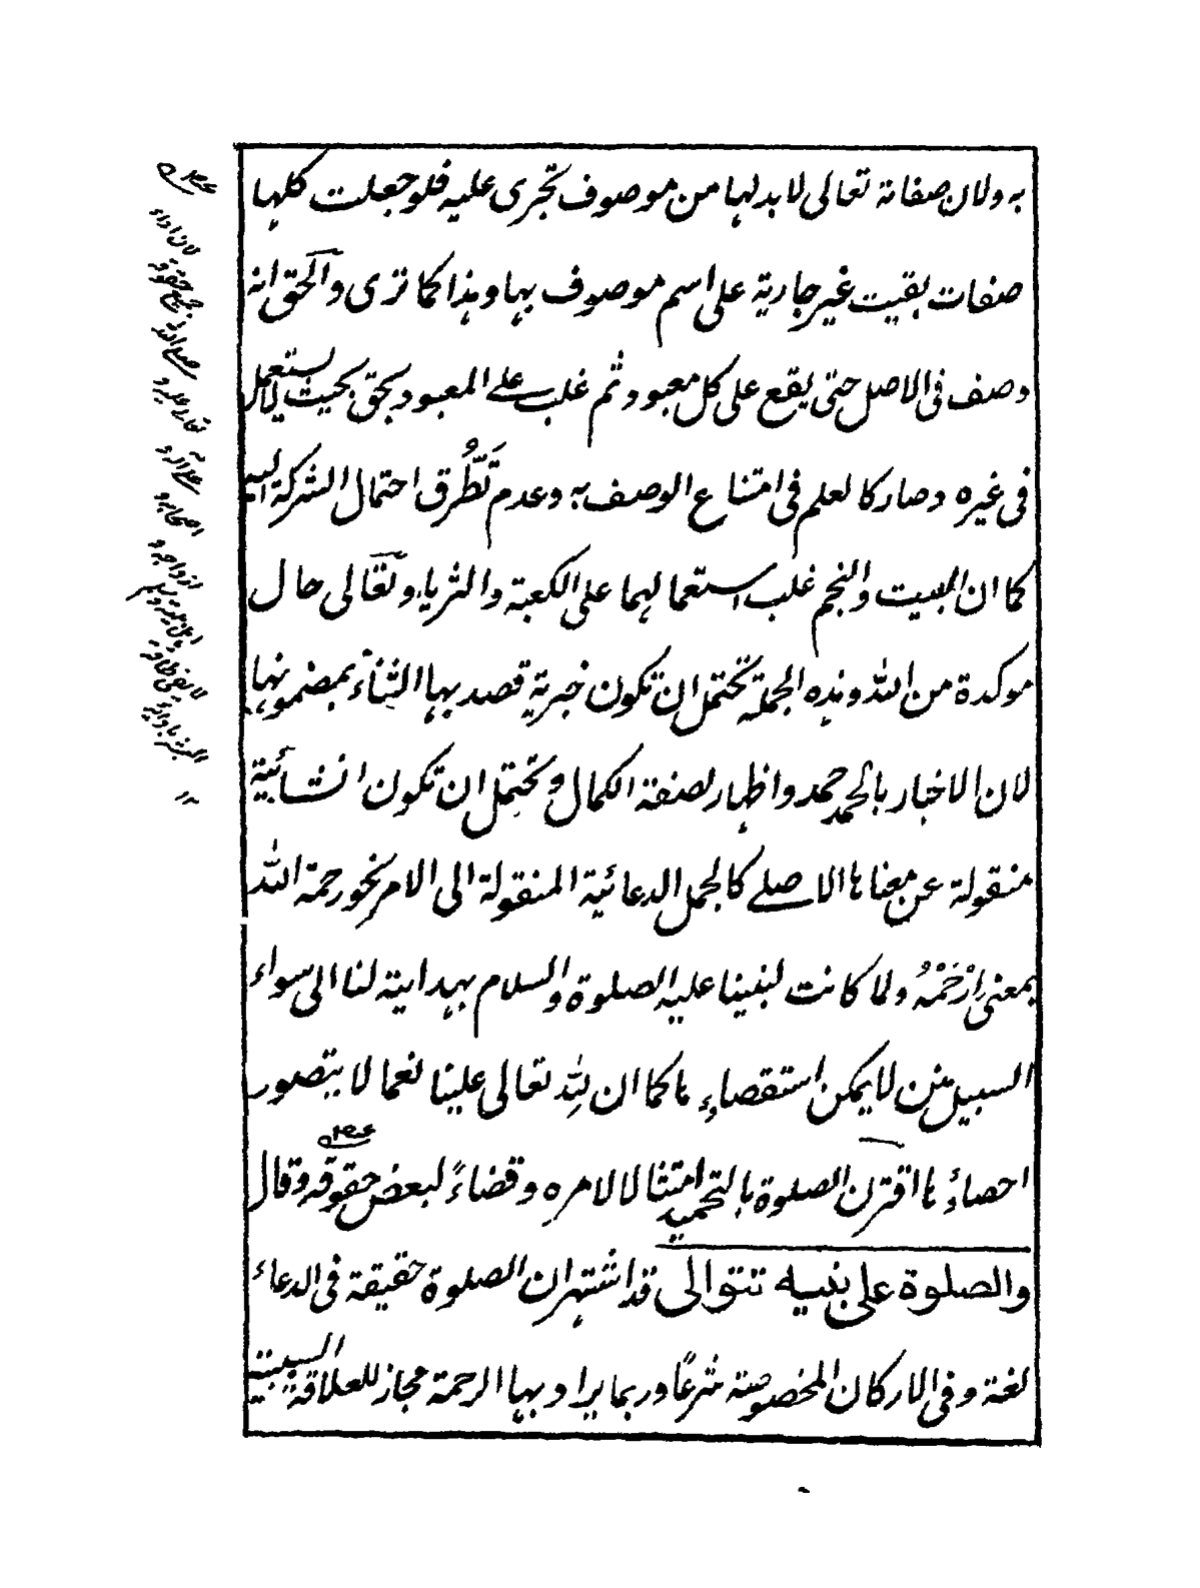 به ولان صفاته تعالى لا بد لها من موصوف تجرى عليه فلو جعلت كلها
صفات بقيت غير جارية على اسم موصوف بها وهذا كما ترى والحق انه
وصف فى الاصل حتى يقع على كل معبود ثم غلب على المعبود بحق بحيث لا يستعمل
فى غيره وصار كالعلم فى امتناع الوصف به وعدم تَطُّرق احتمال الشركة اليه
كما ان البيت والنجم غلب استعمالهما على الكعبة والثريا وتعالى حال
موكدة من الله وهذه الجملة تحتمل ان تكون خبرية قصد بها الثناء بمضمونها
لان الاخبار بالحمد حمد واظهار لصفة الكمال وتحتمل ان تكون انشائية
منقولة عن معناها الاصلے كالجمل الدعائية المنقولة الى الامر نحو رحمة الله
بمعنى اِرْحَمْهُ ولما كانت لنبينا عليه الصلوة والسلام بهدايته لنا الى سواء
السبيل منن لا يمكن استقصاءها كما ان لله تعالى علينا نعما لا يتصور
احصاءُها اقترن الصلوة بالتحميد امتثالا لامره وقضاءً لبعض حقوقه وقال
والصلوة على نبيه تتوالى قد اشتهر ان الصلوة حقيقة فى الدعاء
لغة وفى الاركان المخصوصة شرعًا وربما يراد بها الرحمة مجاز للعلاقة السببية
لان اداء
جميع حقوقه
صلى الله
تعالى عليه و
على اله و
اصحابه و
ازواجه و